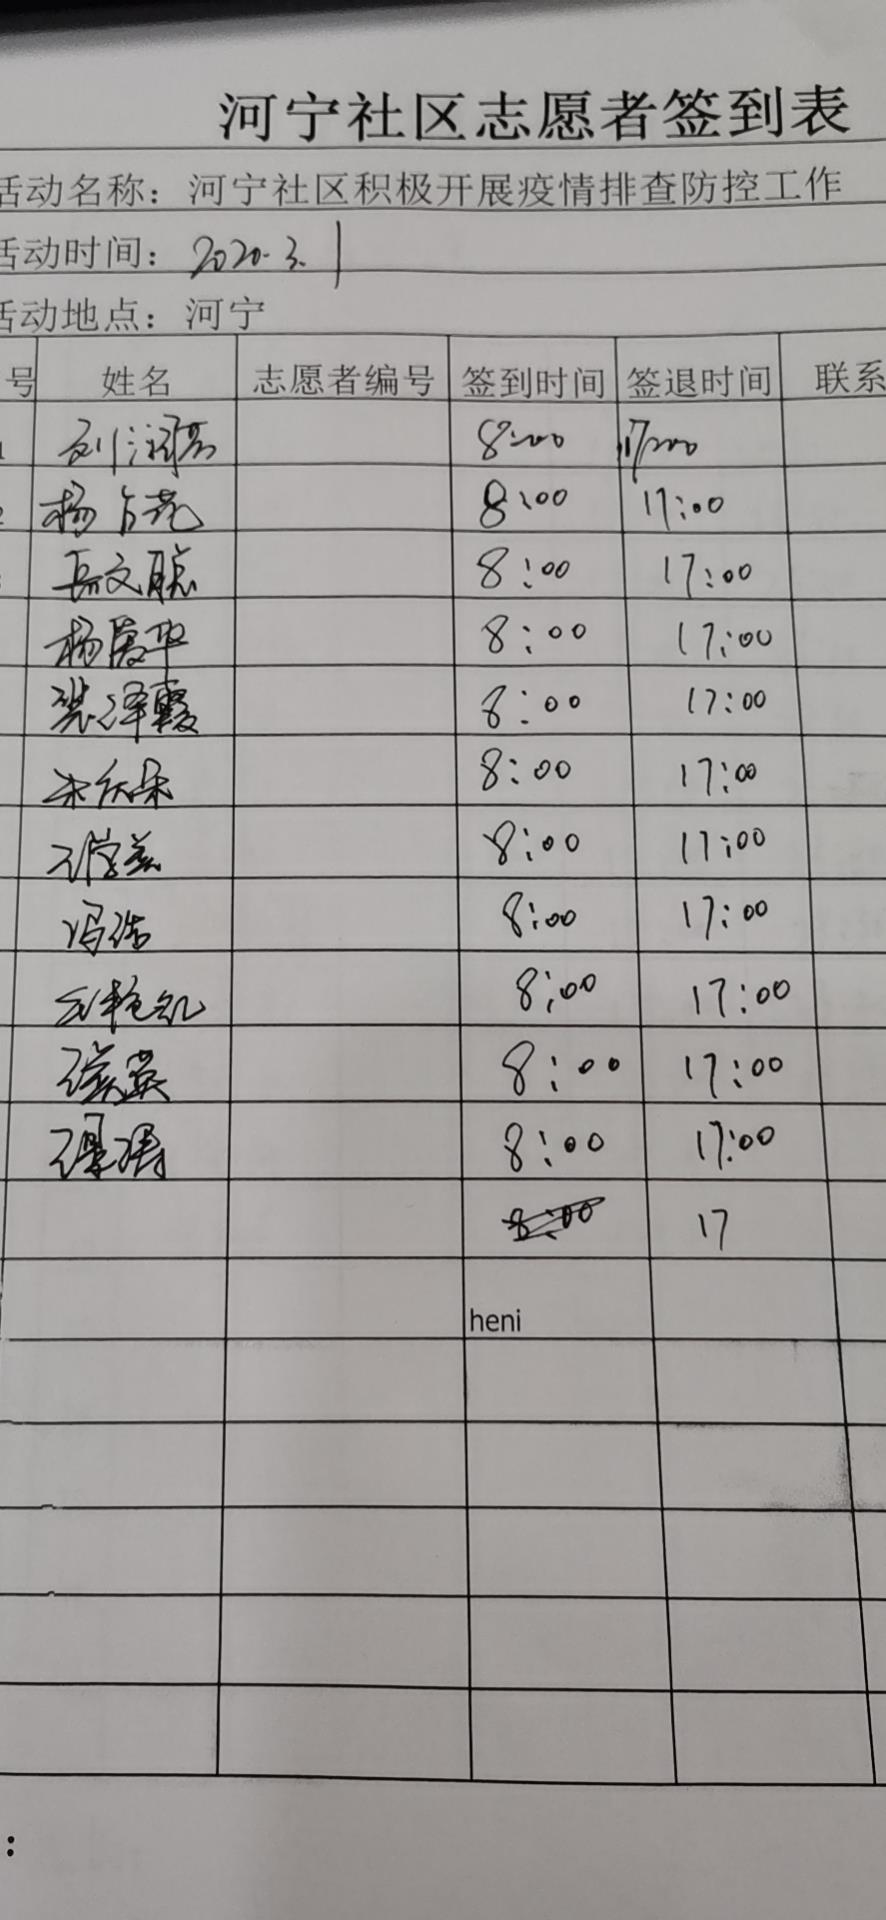 河宁社区志愿者签到表
活动名称：河宁社区积极开展疫情排查防控工作
活动时间：2020.3.1
活动地点：河宁
号 姓名 志愿者编号 签到时间 签退时间 联系
1 刘 8:00 17:00
2 杨占花 8:00 17:00
文聪 8:00 17:00
杨爱华 8:00 17:00
泽霞 8:00 17:00
8:00 17:00
8:00 17:00
冯浩 8:00 17:00
8:00 17:00
8:00 17:00
8:00 17:00
8:00 17
heni
: